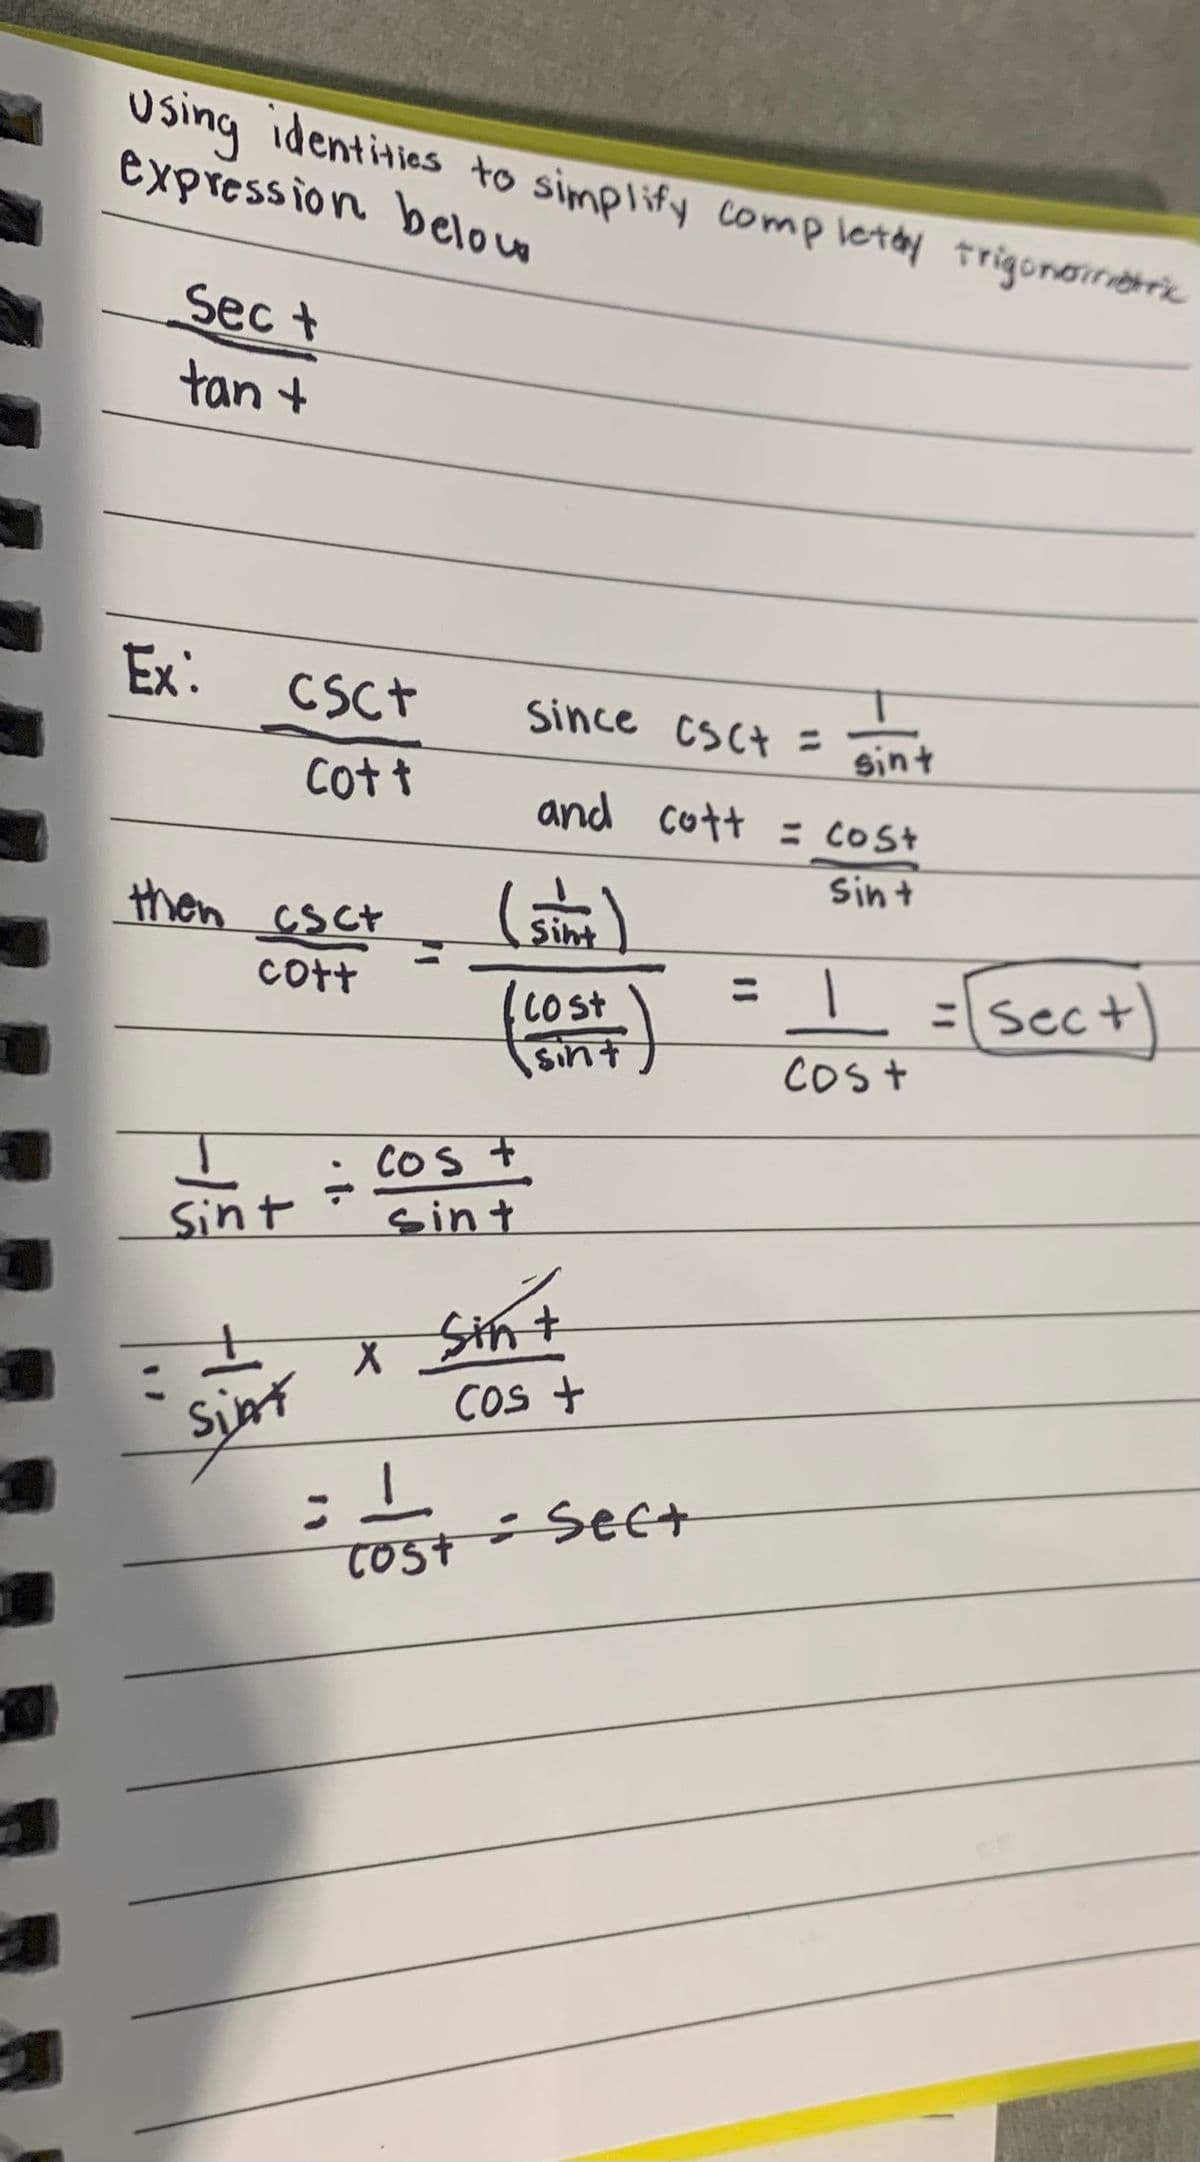 Using identities to simplify completely trigonometric
expression below
sec t
tan t
Ex:
csct
cot t
since csct = 1
sint
and cott = cost
sin t
then csct
cott
= (1
sint)
(cost
sint)
= 1
cos t
= sec t
1
sint
÷ cos t
sint
= 1
sint
x sin t
cos t
= 1
cost
= sect